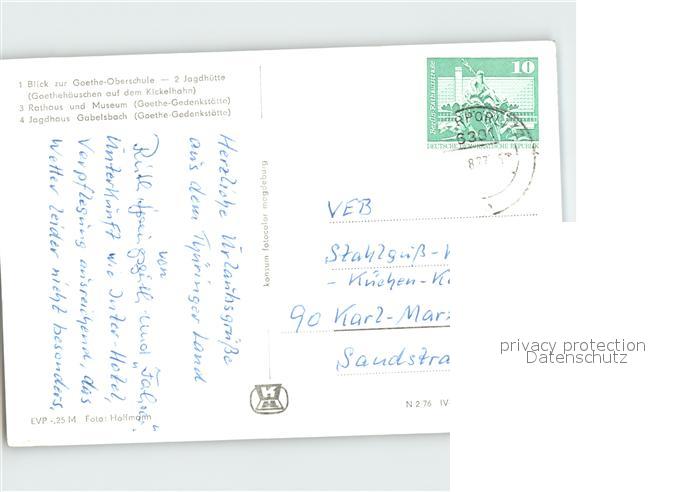 1 Blick zur Goethe-Oberschule — 2 Jagdhütte
(Goethehäuschen auf dem Kickelhahn)
3 Rathaus und Museum (Goethe-Gedenkstätte)
4 Jagdhaus Gabelsbach (Goethe-Gedenkstätte)
Herzliche Urlaubsgrüße
aus dem Thüringer Land
von
und
Unterkunft wie Inter-Hotel,
Verpflegung ausreichend, das
Wetter leider nicht besonders.
EVP -,25 M. Foto: Hoffmann
konsum fotocolor magdeburg
N 2 76 IV
10
DEUTSCHE DEMOKRATISCHE REPUBLIK
VEB
Stahlguß-
- Küchen-
90 Karl-Mar
Sandstra
privacy protection
Datenschutz